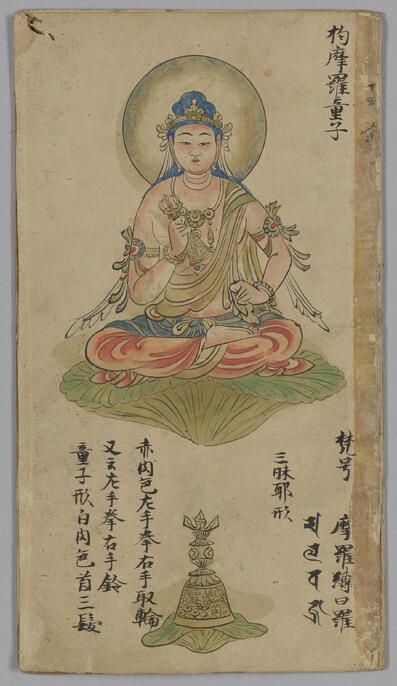 杓摩羅童子
梵号 摩羅縛日羅
三昧耶形
赤肉色左手拳右手取輪
又云左手拳右手鈴
童子形白肉色首三髪